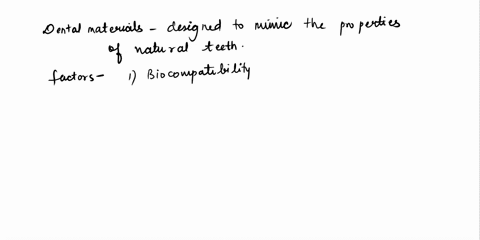 Dental materials - designed to mimic the properties
of natural teeth.
factors - 1) Biocompatibility